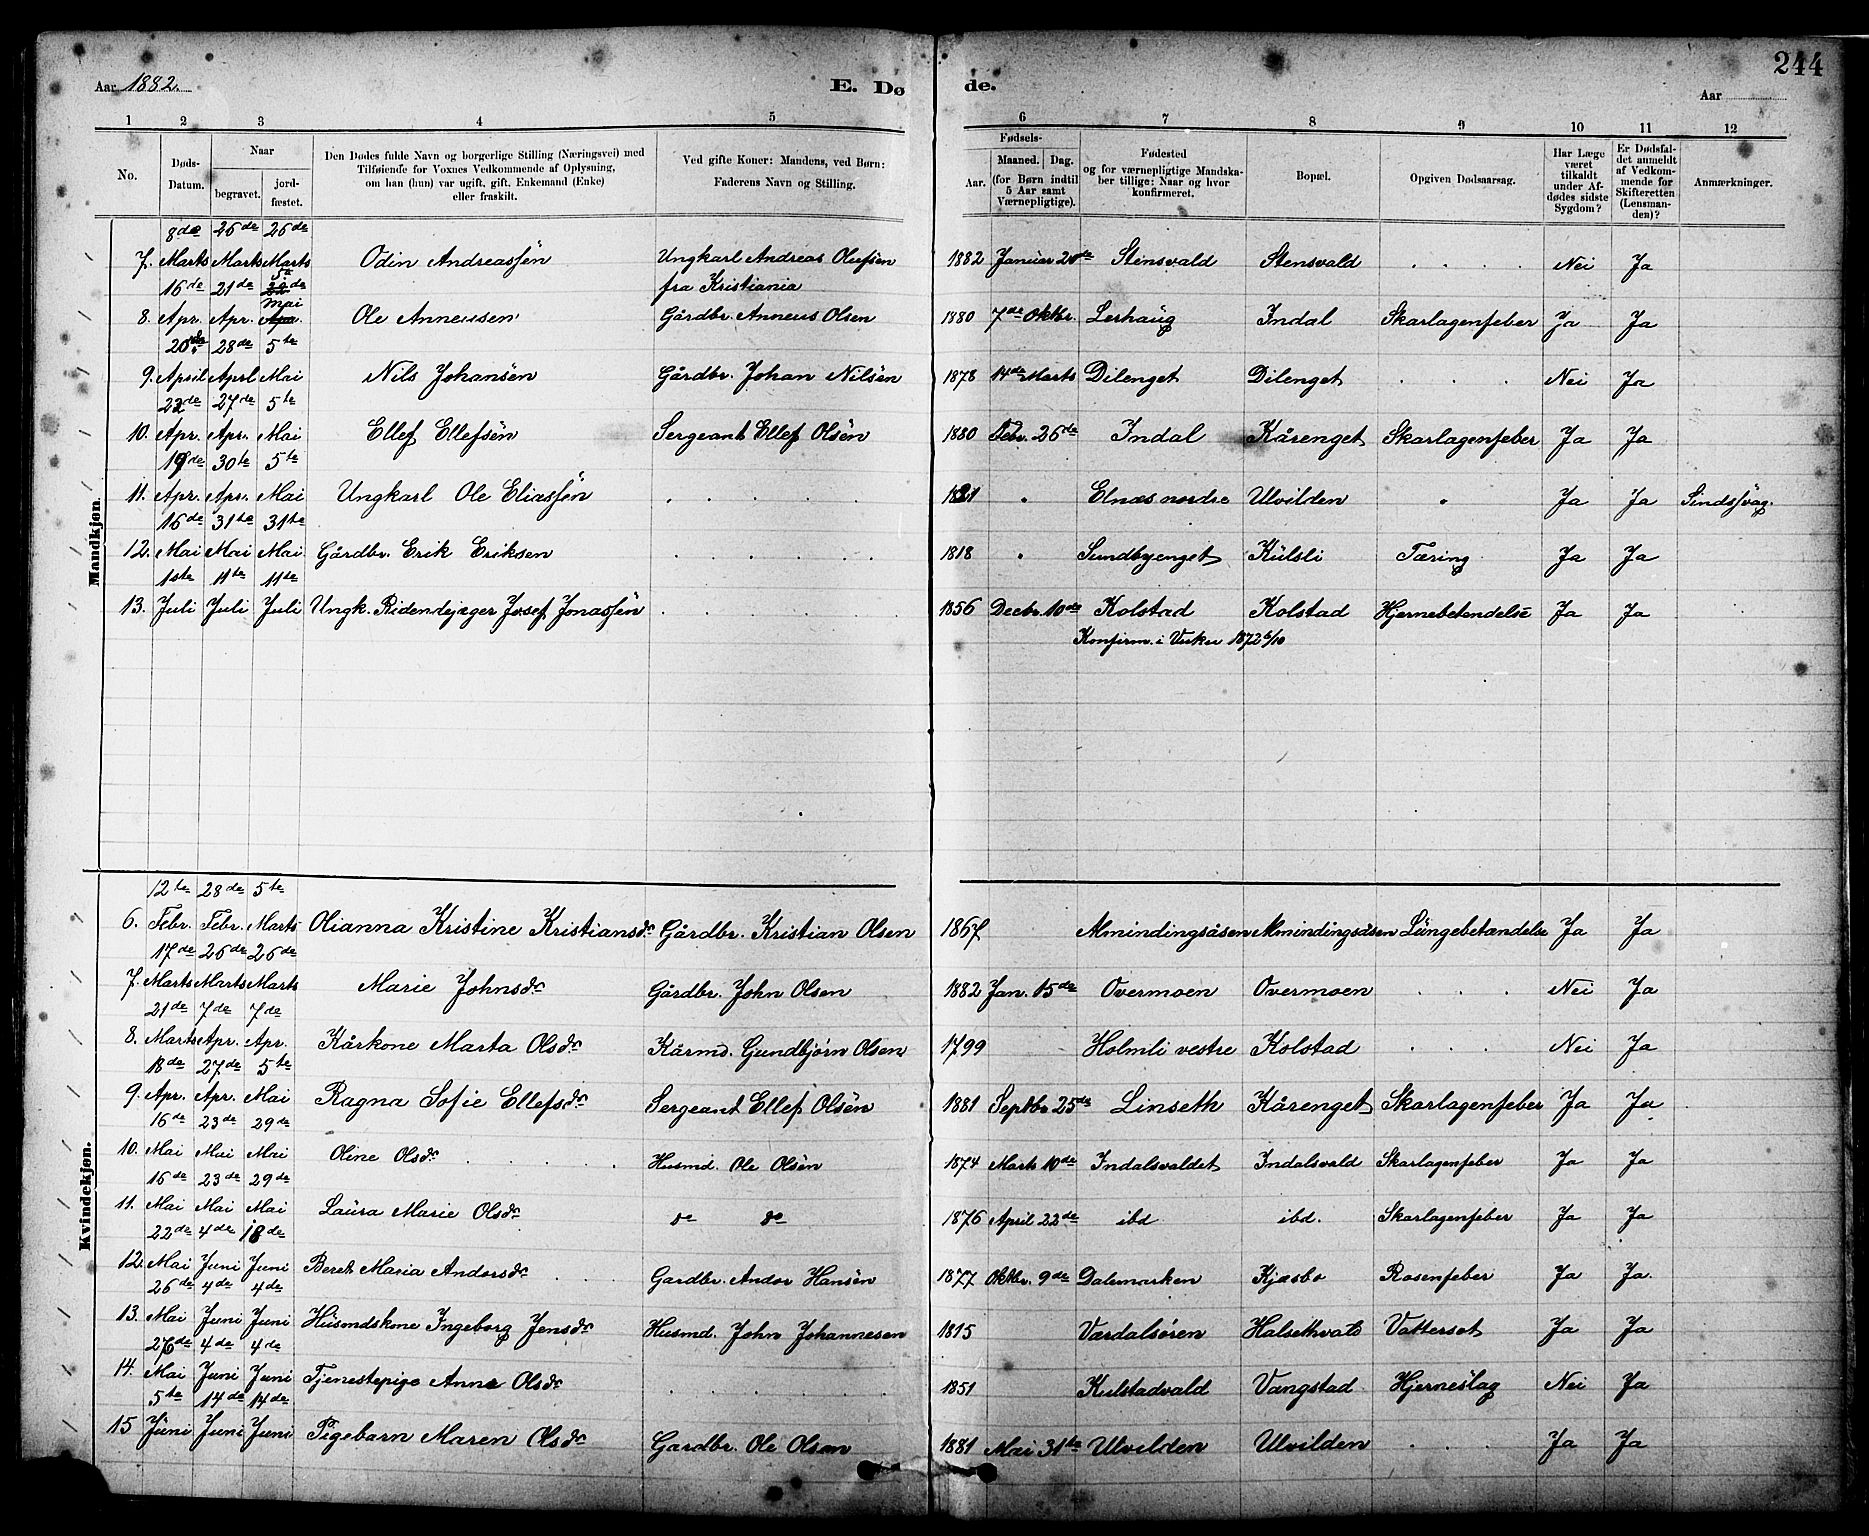 244
Aar 1882.
E. Døde.
Aar
1 2 3 4 5 6 7 8 9 10 11 12
No.
Døds-Datum.
Naar
begravet.
jord-fæstet.
Den Dødes fulde Navn og borgerlige Stilling (Næringsvei) med
Tilføiende for Voxnes Vedkommende af Oplysning,
om han (hun) var ugift, gift, Enkemand (Enke)
eller fraskilt.
Ved gifte Koner: Mandens, ved Børn:
Faderens Navn og Stilling.
Fødsels-
Aar.
Maaned. Dag.
(for Børn indtil
5 Aar samt
Værnepligtige).
Fødested
og for værnepligtige Mandska-
ber tillige: Naar og hvor
konfirmeret.
Bopæl.
Opgiven Dødsaarsag.
Har Læge
været
tilkaldt
under Af-
dødes sidste
Sygdom?
Er Dødsfal-
det anmeldt
af Vedkom-
mende for
Skifteretten
(Lensman-
den)?
Anmærkninger.
Mandkjøn.
8de 26de 26de
7. Marts Marts Marts Odin Andreassön Ungkarl Andreas Olufsen 1882 Januar 20de Stensvald Stensvald . . . . Nei Ja
fra Kristiania
16de 21de 5te
8. Apr. Apr. Mai Ole Anneusen Gårdbr. Anneus Olsen 1880 7de Oktbr. Lerhaug Indal Skarlagenfeber Ja Ja
20de 28de 5te
9. April Aprl Mai Nils Johansen Gårdbr. Johan Nilsen 1878 14de Marts Dilenget Dilenget . . . Nei Ja
22de 27de 5te
10. Apr. Apr. Mai Ellef Ellefsön Sergeant Ellef Olsén 1880 Febr. 26de Indal Kårenget Skarlagenfeber Ja Ja
19de 30te 5te
11. Apr. Apr. Mai Ungkarl Ole Eliassön . . . . 1821 " Elnæs nordre Ulvilden " Ja Ja Sindssvag.
16de 31te 31te
12. Mai Mai Mai Gårdbr. Erik Eriksen . . . . 1818 " Sundbyenget Külsli Tæring Ja Ja
1ste 11te 11de
13. Juli Juli Juli Ungk. Ridendejæger Josef Jonassön . . . . 1856 Decbr. 10de Kolstad Kolstad Hjernebetendelse Ja Ja
Konfirm. i Vuku 1872 6/10
Kvindekjøn.
12te 28de 5te
6. Febr. Febr. Marts Olianna Kristine Kristiansdr Gårdbr. Kristian Olsen 1867 Almindingsåsen Almindingsåsen Lüngebetændelse Ja Ja
17de 26de 26de
7. Marts Marts Marts Marie Johnsdr Gårdbr. John Olsen 1882 Jan. 15de Overmoen Overmoen . . . Nei Ja
21de 7de 7de
8. Marts Apr. Apr. Kårkone Marta Olsdr Kårmd. Gundbjørn Olsen 1799 Holmli vestre Kolstad . . . Nei Ja
18de 27de 5te
9. Apr. Apr. Mai Ragna Sofie Ellefsdr Sergeant Ellef Olsén 1881 Septbr 25de Linseth Kårenget Skarlagenfeber Ja Ja
16de 23de 29de
10. Mai Mai Mai Oline Olsdr . . . . Husmd. Ole Olsén 1874 Marts 10de Indalsvaldet Indalsvald Skarlagenfeber Ja Ja
16de 23de 29de
11. Mai Mai Mai Laura Marie Olsdr do do 1876 April 22de ibd ibd. Skarlagenfeber Ja Ja
22de 4de 18de
12. Mai Juni Juni Beret Maria Andorsdr . . Gardbr. Andor Hansén 1877 Oktbr. 9de Dalemarken Kjæsbo Rosenfeber Ja Ja.
26de 4de 4de
13. Mai Juni Juni Hüsmdskone Ingeborg Jensdr Husmd. John Johannesen 1815 Værdalsören Halsethvald Vattersot Ja Ja
27de 4de 4de
14. Mai Juni Juni Tjenestepige Anne Olsdr . . . . 1851 Kulstadvald Vangstad Hjerneslag Nei Ja
5te 14de 14de
15 Juni Juni Juni Pigebarn Maren Olsdr Gardbr. Ole Olsen 1881 Mai 31te Ulvilden Ulvilden . . . Ja Ja